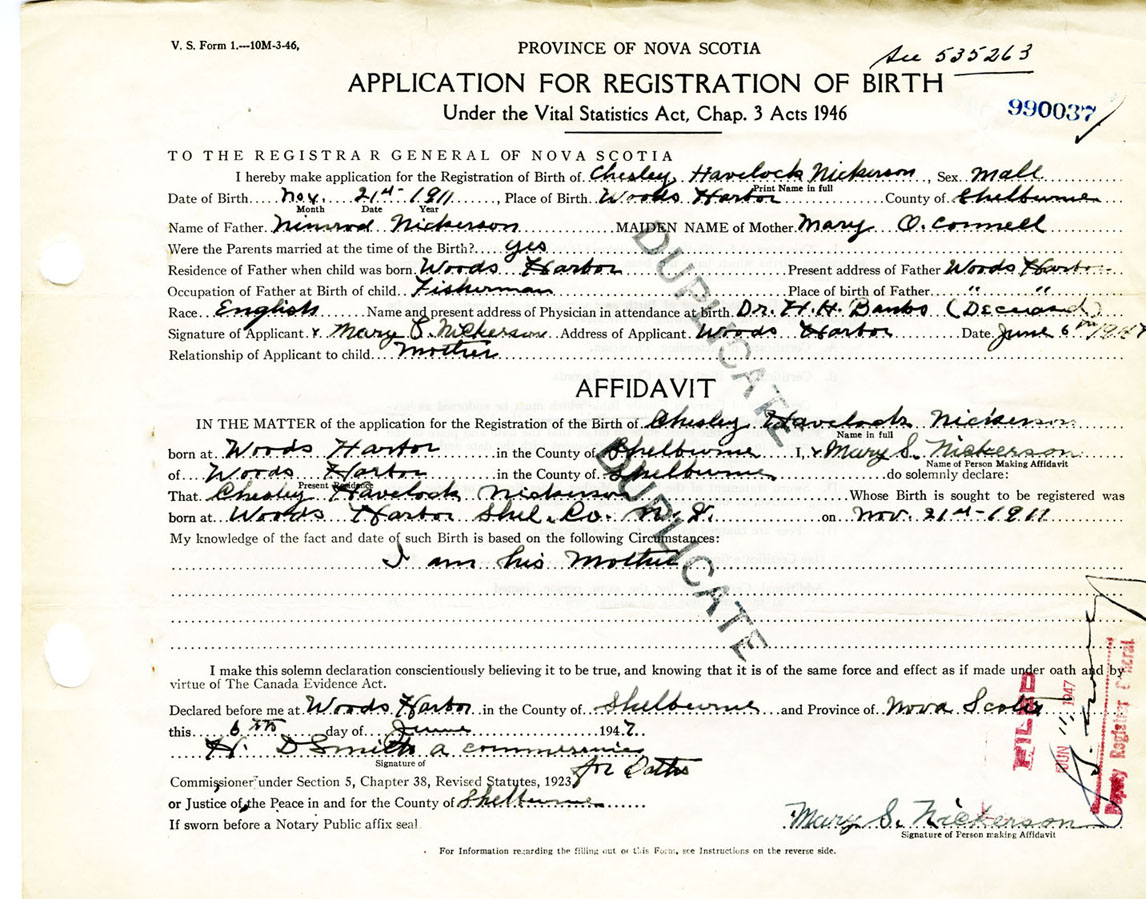 V. S. Form 1.---10M-3-46,
PROVINCE OF NOVA SCOTIA
See 535263
APPLICATION FOR REGISTRATION OF BIRTH
Under the Vital Statistics Act, Chap. 3 Acts 1946
990037
TO THE REGISTRAR GENERAL OF NOVA SCOTIA
I hereby make application for the Registration of Birth of Chesley Havelock Nickerson, Sex Mall
Print Name in full
Date of Birth Nov. 21st 1911, Place of Birth Woods Harbor County of Shelburne
Month Date Year
Name of Father Nimrod Nickerson MAIDEN NAME of Mother Mary O. Connell
Were the Parents married at the time of the Birth? yes
Residence of Father when child was born Woods Harbor Present address of Father Woods Harbor
Occupation of Father at Birth of child Fisherman Place of birth of Father " "
Race English Name and present address of Physician in attendance at birth. Dr. H. H. Banks (Deceased)
Signature of Applicant x Mary S. Nickerson Address of Applicant Woods Harbor Date June 6th 1947
Relationship of Applicant to child Mother
DUPLICATE
AFFIDAVIT
IN THE MATTER of the application for the Registration of the Birth of Chesley Havelock Nickerson
Name in full
born at Woods Harbor in the County of Shelburne I, x Mary S. Nickerson
Name of Person Making Affidavit
of Woods Harbor in the County of Shelburne do solemnly declare:
Present Residence
That Chesley Havelock Nickerson Whose Birth is sought to be registered was
born at Woods Harbor Shel. Co. N. S. on Nov. 21st-1911
My knowledge of the fact and date of such Birth is based on the following Circumstances:
I am his Mother
DUPLICATE
I make this solemn declaration conscientiously believing it to be true, and knowing that it is of the same force and effect as if made under oath and by
virtue of The Canada Evidence Act.
Declared before me at Woods Harbor in the County of Shelburne and Province of Nova Scotia
this 6th day of June 1947.
H. D Smith a commissioner
Signature of
for Oaths
Commissioner under Section 5, Chapter 38, Revised Statutes, 1923
or Justice of the Peace in and for the County of Shelburne
If sworn before a Notary Public affix seal
FILED
JUN 1947
Deputy Registrar General
Mary S. Nickerson
Signature of Person making Affidavit
For Information regarding the filling out of this Form, see Instructions on the reverse side.